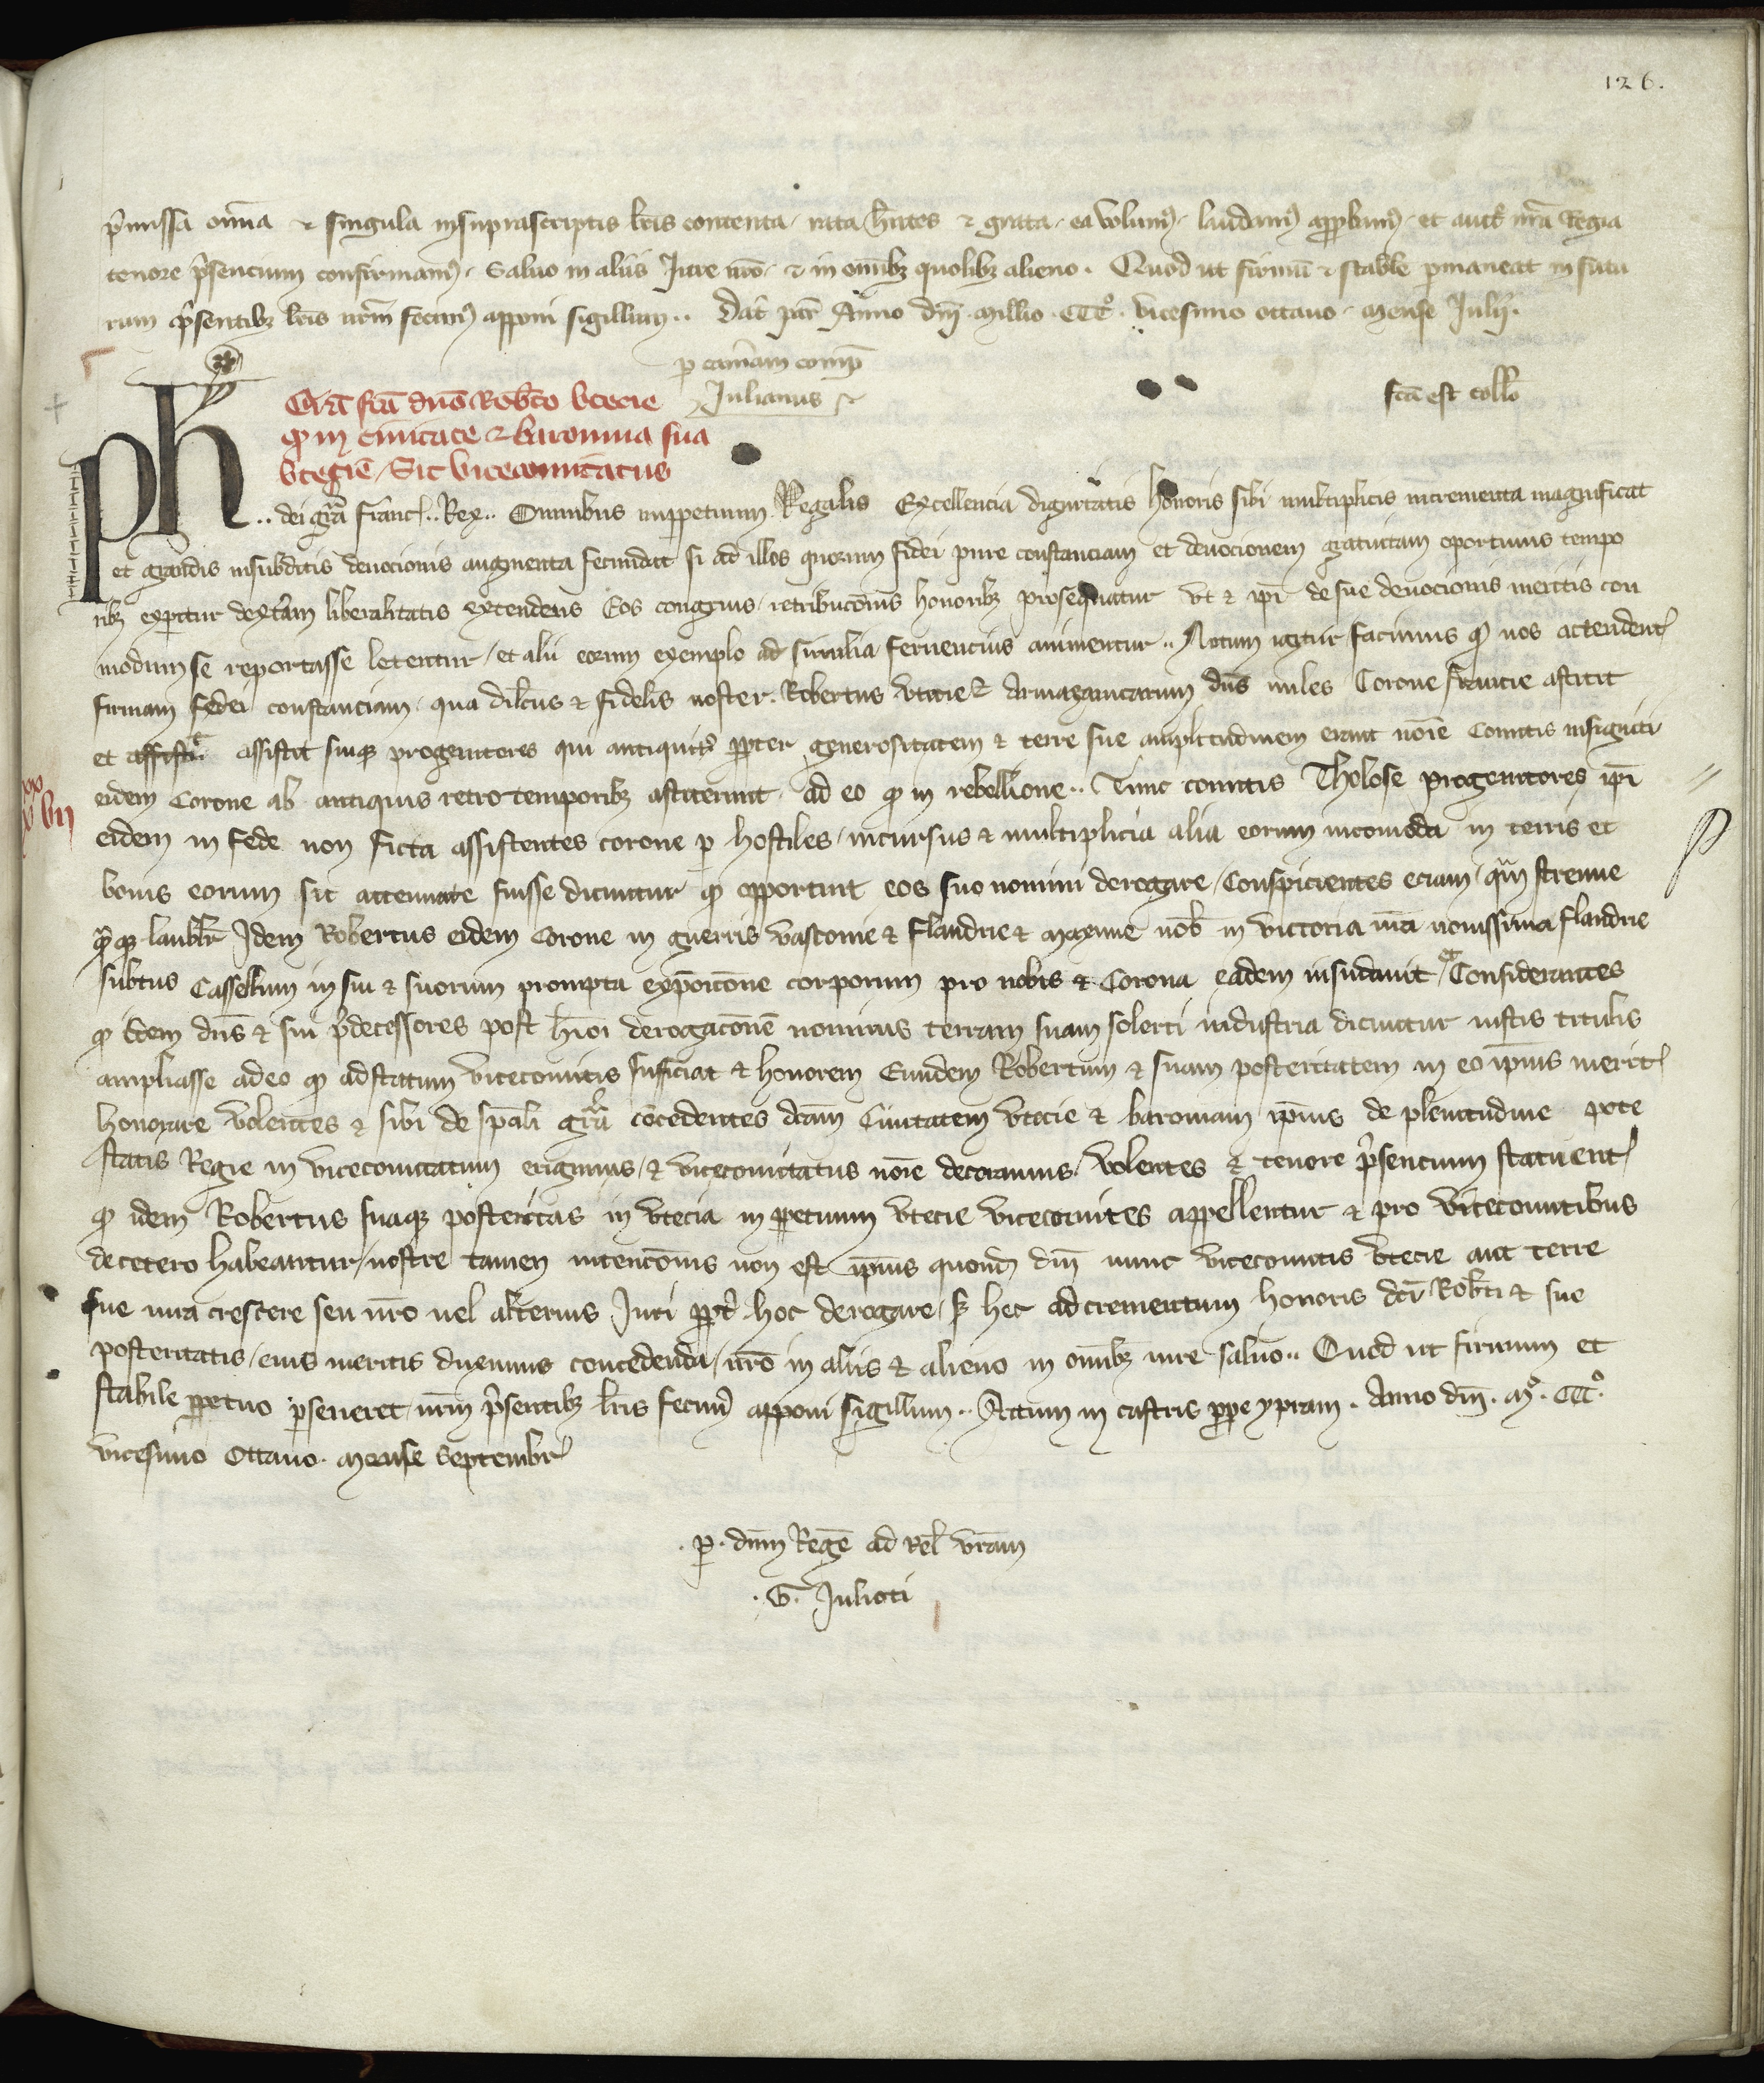 126.
p̄missa om̄ia ⁊ singula insuprascriptis lr̄is contenta rata hn̄tes ⁊ grata ea volum⁹ laudam⁹ app̱bam⁹ et auct̄ nr̄a Regia
tenore p̄sencium confirmam⁹. Saluo in aliis Jure nr̄o ⁊ in om̄ibꝫ quolibꝫ alieno. Quod ut firmū ⁊ stabile ꝑmaneat in futu
rum p̄sentibꝫ lr̄is nr̄m fecim⁹ apponi sigillum.. Dat̄ par̄ Anno dn̄i millio CCC° vicesimo octauo mense Julij.
ꝑ cam̄am comp̄
Julianus
fc̄a est coll̄o
Gr̄a fc̄a dn̄o Rob̄to vtecie
ꝙ in ciuitate ⁊ baronnia sua
vtegiē / Sit vicecomitatus
Ph .. dei gr̄a Franc̄.. Rex.. Omnibus inperpetuum Regalis Excellencia dignitatis honoris sibi multiplicis incrementa magnificat
et grandis insubditis deuocionis augmenta fecundat si ad illos quorum fidei pure constanciam et deuocionem gratuitam oportunis tempo
ribꝫ experitur dext̄am liberalitatis extendens Eos congruis retribuc̄onis honoribꝫ prosequatur vt ⁊ ip̄i de sue deuocionis meritis con
modum se reportasse letentur / et alii eorum exemplo ad similia feruencius animentur.. Notum igitur facimus ꝙ nos actendent̄
firmam fidei constanciam qua dil̄cus ⁊ fidelis noster Robertus vtecie ⁊ Armazanicarum dn̄s miles Corone francie astitit
et assistit suiqꝫ progenitores qui antiquit̄ ꝓpter generositatem ⁊ terre sue amplitudinem erant no͞ie Comitis insigniti
eidem Corone ab antiquis retro temporibꝫ astiterunt ad eo ꝙ in rebellione.. Tunc comitis Tholose progenitores ip̄i
eidem in fide non ficta assistentes corone ꝑ hostiles incursus ⁊ multiplicia alia eorum incomoda in terris et
bonis eorum sic attenuate fuisse dicuntur ꝙ opportuit eos suo nomini derogare / Conspicientes eciam qm̄ strenue
qm̄qꝫ laubl̄r Idem Robertus eidem Corone in guerris vasconie ⁊ Flandrie ⁊ maxime nob̄ in victoria nr̄a nouissima flandrie
subtus Cassellum in sui ⁊ suorum prompta exp̄oic̄one corporum pro nobis ⁊ Corona eadem insudauit / Considerantes
ꝙ idem dn̄s ⁊ sui p̄decessores post h̄moi derogac̄onē nominis terram suam solerti industria dicuntur iustis titulis
ampliasse adeo ꝙ ad statum vicecomitis sufficiat ⁊ honorem Eundem Robertum ⁊ suam posteritatem in eo ip̄ius merit̄
honorare volentes ⁊ sibi de sp̄ali gr̄a cōcedentes dc̄am Ciuitatem vtecie ⁊ baroniam ip̄ius de plenitudine pote
statis Regie in vicecomitatum erigimus ⁊ vicecomitatus no͞ie decoramus volentes ⁊ tenore p̄sencium statuent̄
ꝙ idem Robertus suaqꝫ posteritas in vtecia in ꝑpetuum vtecie vicecomites appellentur ⁊ pro vicecomitibus
decetero habeantur / nostre tamen intenc̄onis non est ip̄ius quond̄ dn̄i nunc vicecomitis vtecie aut terre
sue iura crescere seu nr̄o uel alterius Juri ꝓpt̄ hoc derogare / sꝫ hec ad crementum honoris dc̄i Rob̄ti ⁊ sue
posteritatis / eius meritis duximus concedenda / nr̄o in aliis ⁊ alieno in om̄ibꝫ iure saluo.. Quod ut firmum et
stabile ꝑpetuo ꝑseueret nr̄m p̄sentibꝫ lr̄is fecim⁹ apponi sigillum.. Actum in castris ꝓpe ypram. Anno dn̄i. m°. CCC°.
vicesimo Octauo. mense Septembr̄
. ꝑ. dn̄m Regē ad Rel̄ vr̄am
. G. Julioti